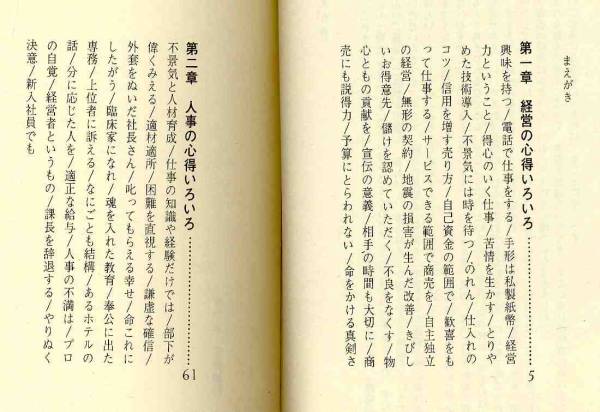 まえがき
第一章 経営の心得いろいろ……………………5
興味を持つ/電話で仕事をする/手形は私製紙幣/経営
力ということ/得心のいく仕事/苦情を生かす/とりや
めた技術導入/不景気には時を待つ/のれん/仕入れの
コツ/信用を増す売り方/自己資金の範囲で/歓喜をも
って仕事する/サービスできる範囲で商売を/自主独立
の経営/無形の契約/地震の損害が生んだ改善/きびし
いお得意先/儲けを認めていただく/不良をなくす/物
心ともの貢献を/宣伝の意義/相手の時間も大切に/商
売にも説得力/予算にとらわれない/命をかける真剣さ
第二章 人事の心得いろいろ……………………61
不景気と人材育成/仕事の知識や経験だけでは/部下が
偉くみえる/適材適所/困難を直視する/謙虚な確信/
外套をぬいだ社長さん/叱ってもらえる幸せ/命これに
したがう/臨床家になれ/魂を入れた教育/奉公に出た
専務/上位者に訴える/なにごとも結構/あるホテルの
話/分に応じた人を/適正な給与/人事の不満は/プロ
の自覚/経営者というもの/課長を辞退する/やりぬく
決意/新入社員でも